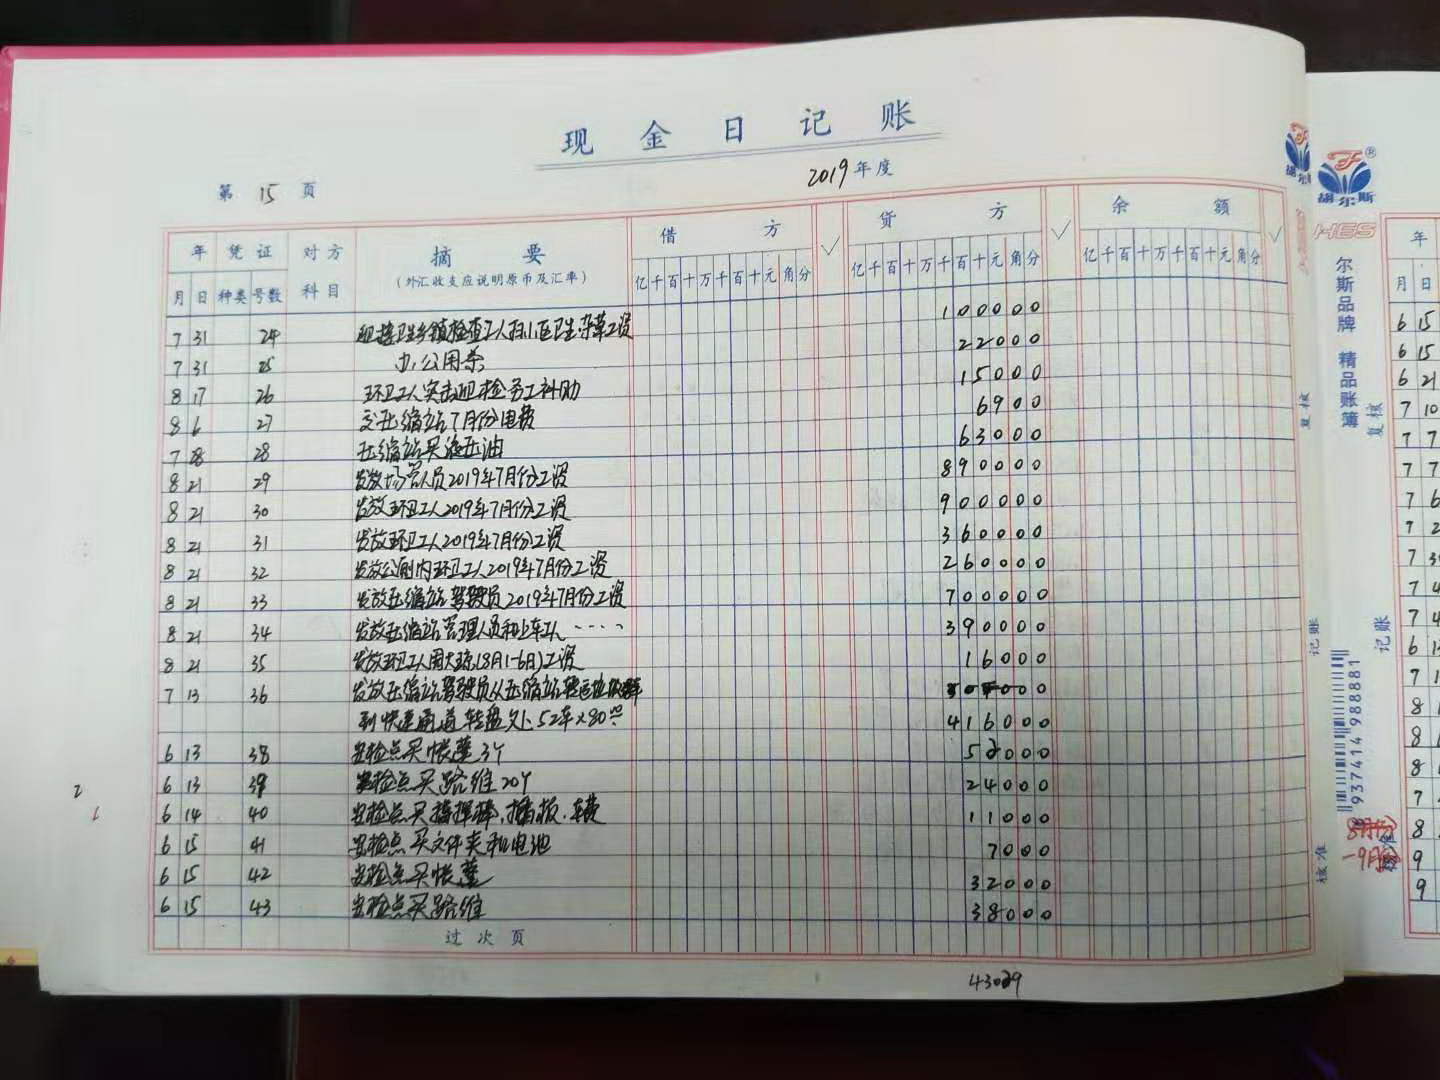 现金日记账
第 15 页
2019年度
年 凭证 对方科目 摘要 借方 √ 贷方 √ 余额 √
月 日 种类 号数 (外汇收支应说明原币及汇率) 亿千百十万千百十元角分 亿千百十万千百十元角分 亿千百十万千百十元角分
7 31 24 迎接卫生乡镇检查工人扫小区卫生、杂草工资 100000
7 31 25 办公用茶 22000
8 17 26 环卫工人突击迎检务工补助 15000
8 6 27 交压缩站7月份电费 6900
7 28 28 压缩站买液压油 63000
8 21 29 发放场管人员2019年7月份工资 890000
8 21 30 发放环卫工人2019年7月份工资 900000
8 21 31 发放环卫工人2019年7月份工资 360000
8 21 32 发放公厕内环卫工人2019年7月份工资 260000
8 21 33 发放压缩站驾驶员2019年7月份工资 700000
8 21 34 发放压缩站管理人员和上车工人 ···· 390000
8 21 35 发放环卫工人周大琼(8月1-6日)工资 16000
7 13 36 发放压缩站驾驶员从压缩站转运垃圾
到快速通道转盘处、52车×80 416000
6 13 38 安检点买帐蓬3个 52000
6 13 39 安检点买路锥20个 24000
6 14 40 安检点买指挥棒,插板、车费 11000
6 15 41 安检点买文件夹和电池 7000
6 15 42 安检点买帐蓬 32000
6 15 43 安检点买路锥 38000
过次页
43029
复核
记账
核准
胡尔斯
®
HES
尔斯品牌 精品账簿
937414988881
复核
记账
8月份
-9月份
年
月 日
6 15
6 15
6 21
7 10
7 7
7 7
7 6
7 2
7 3
7 4
7 4
6 1
7 1
8
8
8
7
8
9
9